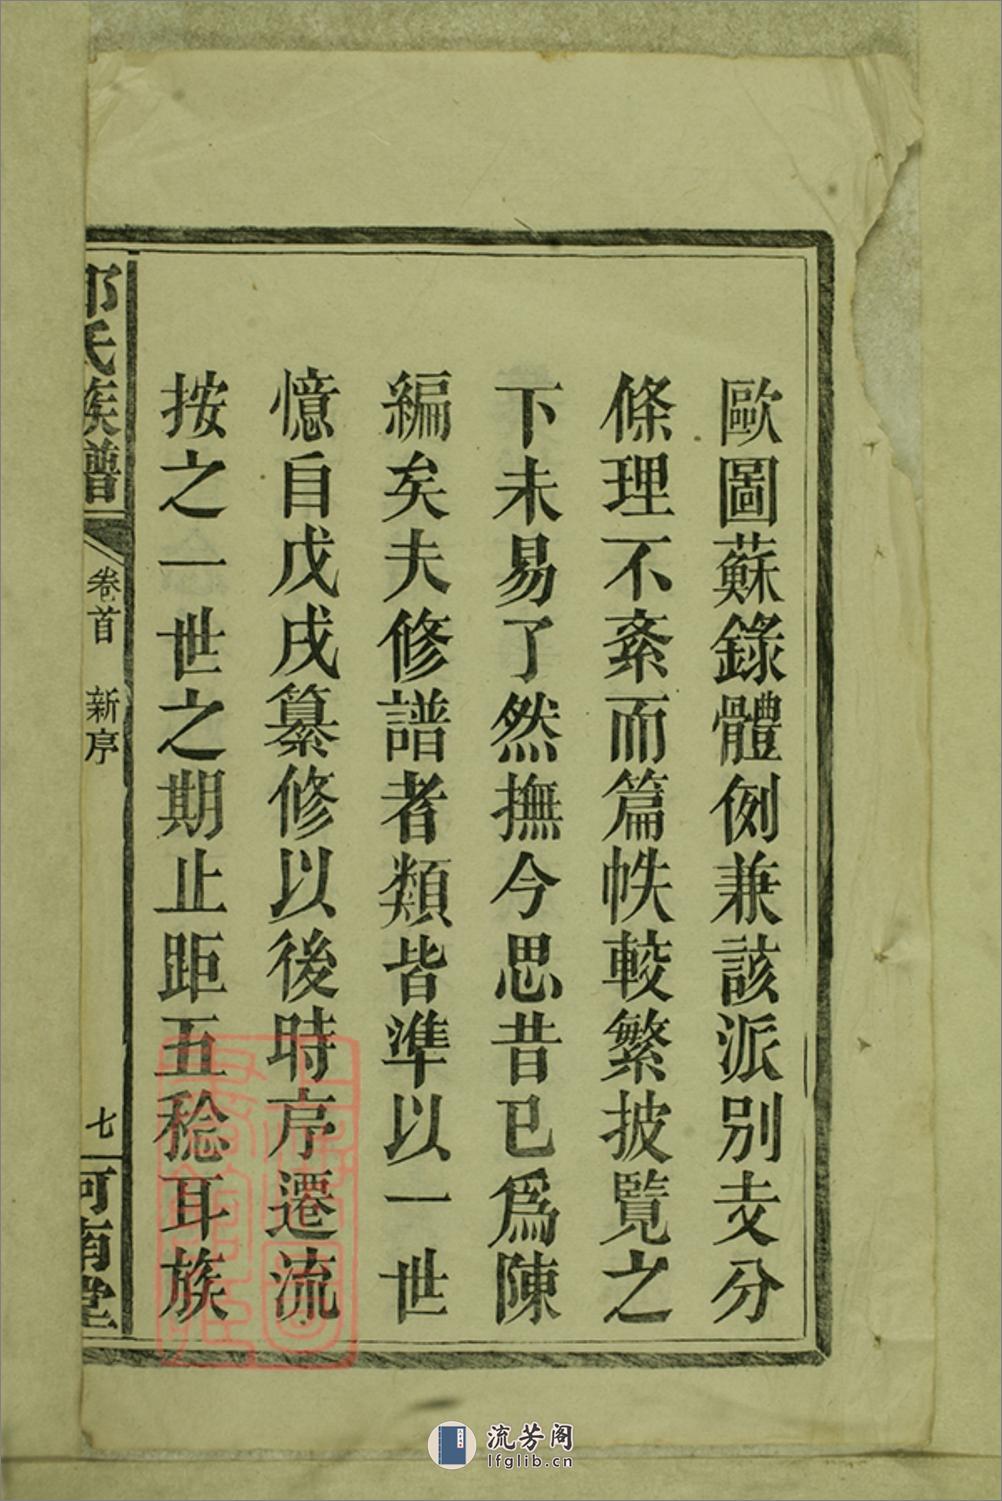 歐圖蘇錄體例兼該派別支分
條理不紊而篇帙較繁披覽之
下未易了然撫今思昔已爲陳
編矣夫修譜者類皆準以一世
憶自戊戌纂修以後時序遷流
按之一世之期止距五稔耳族
氏族譜
卷首 新序
七
河南堂
流芳阁
lfglib.cn